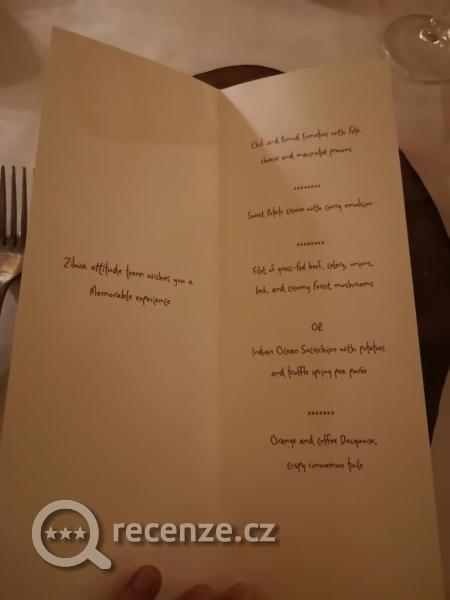 Zilwa attitude team wishes you a
Memorable experience
Chili and Pimud Tomatoes with Feta
cheese and marinated prawns
********
Sweet Potato cream with curry emulsion
********
Filet of grass-fed beef, celery, onions,
leek, and creamy forest mushrooms
OR
Indian Ocean Sacrechien with potatoes
and truffle spring pea purée
*******
Orange and coffee Dacquoise,
crispy cinnamon tuile
recenze.cz